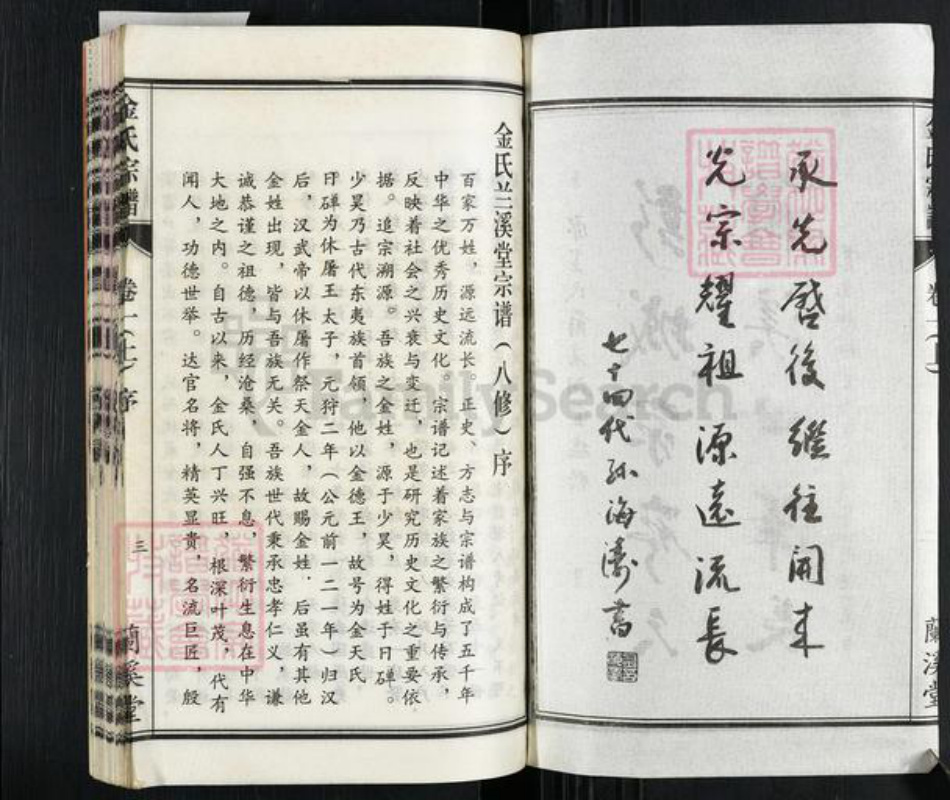 承先啓後繼往開来
光宗耀祖源遠流長
七十四代孙海濤書
蘭溪堂
金氏兰溪堂宗谱(八修)序
百家万姓，源远流长。正史、方志与宗谱构成了五千年
中华之优秀历史文化。宗谱记述着家族之繁衍与传承，
反映着社会之兴衰与变迁，也是研究历史文化之重要依
据。追宗溯源。吾族之金姓，源于少昊，得姓于日磾。
少昊乃古代东夷族首领，他以金德王，故号为金天氏，
日磾为休屠王太子，元狩二年(公元前一二一年)归汉
后，汉武帝以休屠作祭天金人，故赐金姓。后虽有其他
金姓出现，皆与吾族无关。吾族世代秉承忠孝仁义，谦
诚恭谨之祖德，历经沧桑，自强不息，繁衍生息在中华
大地之内。自古以来，金氏人丁兴旺，根深叶茂，代有
闻人，功德世举。达官名将，精英显贵，名流巨匠，殷
金氏宗譜
卷一(上)序
三
蘭溪堂
FamilySearch